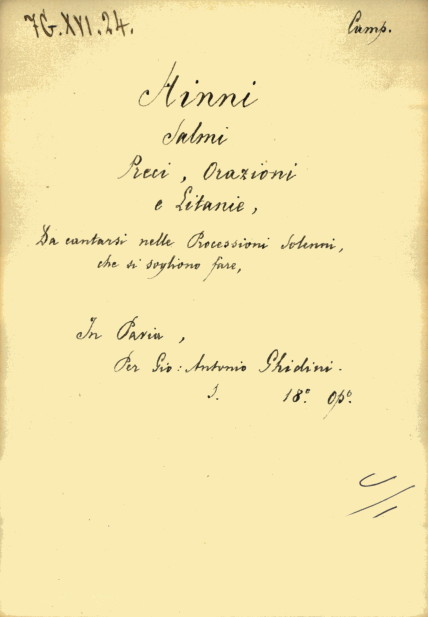 7G.XVI.24.
Camp.
Hinni
Salmi
Preci, Orazioni
e Litanie,
Da cantarsi nelle Processioni Solenni,
che si sogliono fare,
In Pavia,
Per Gio: Antonio Ghidini.
18º Opº.